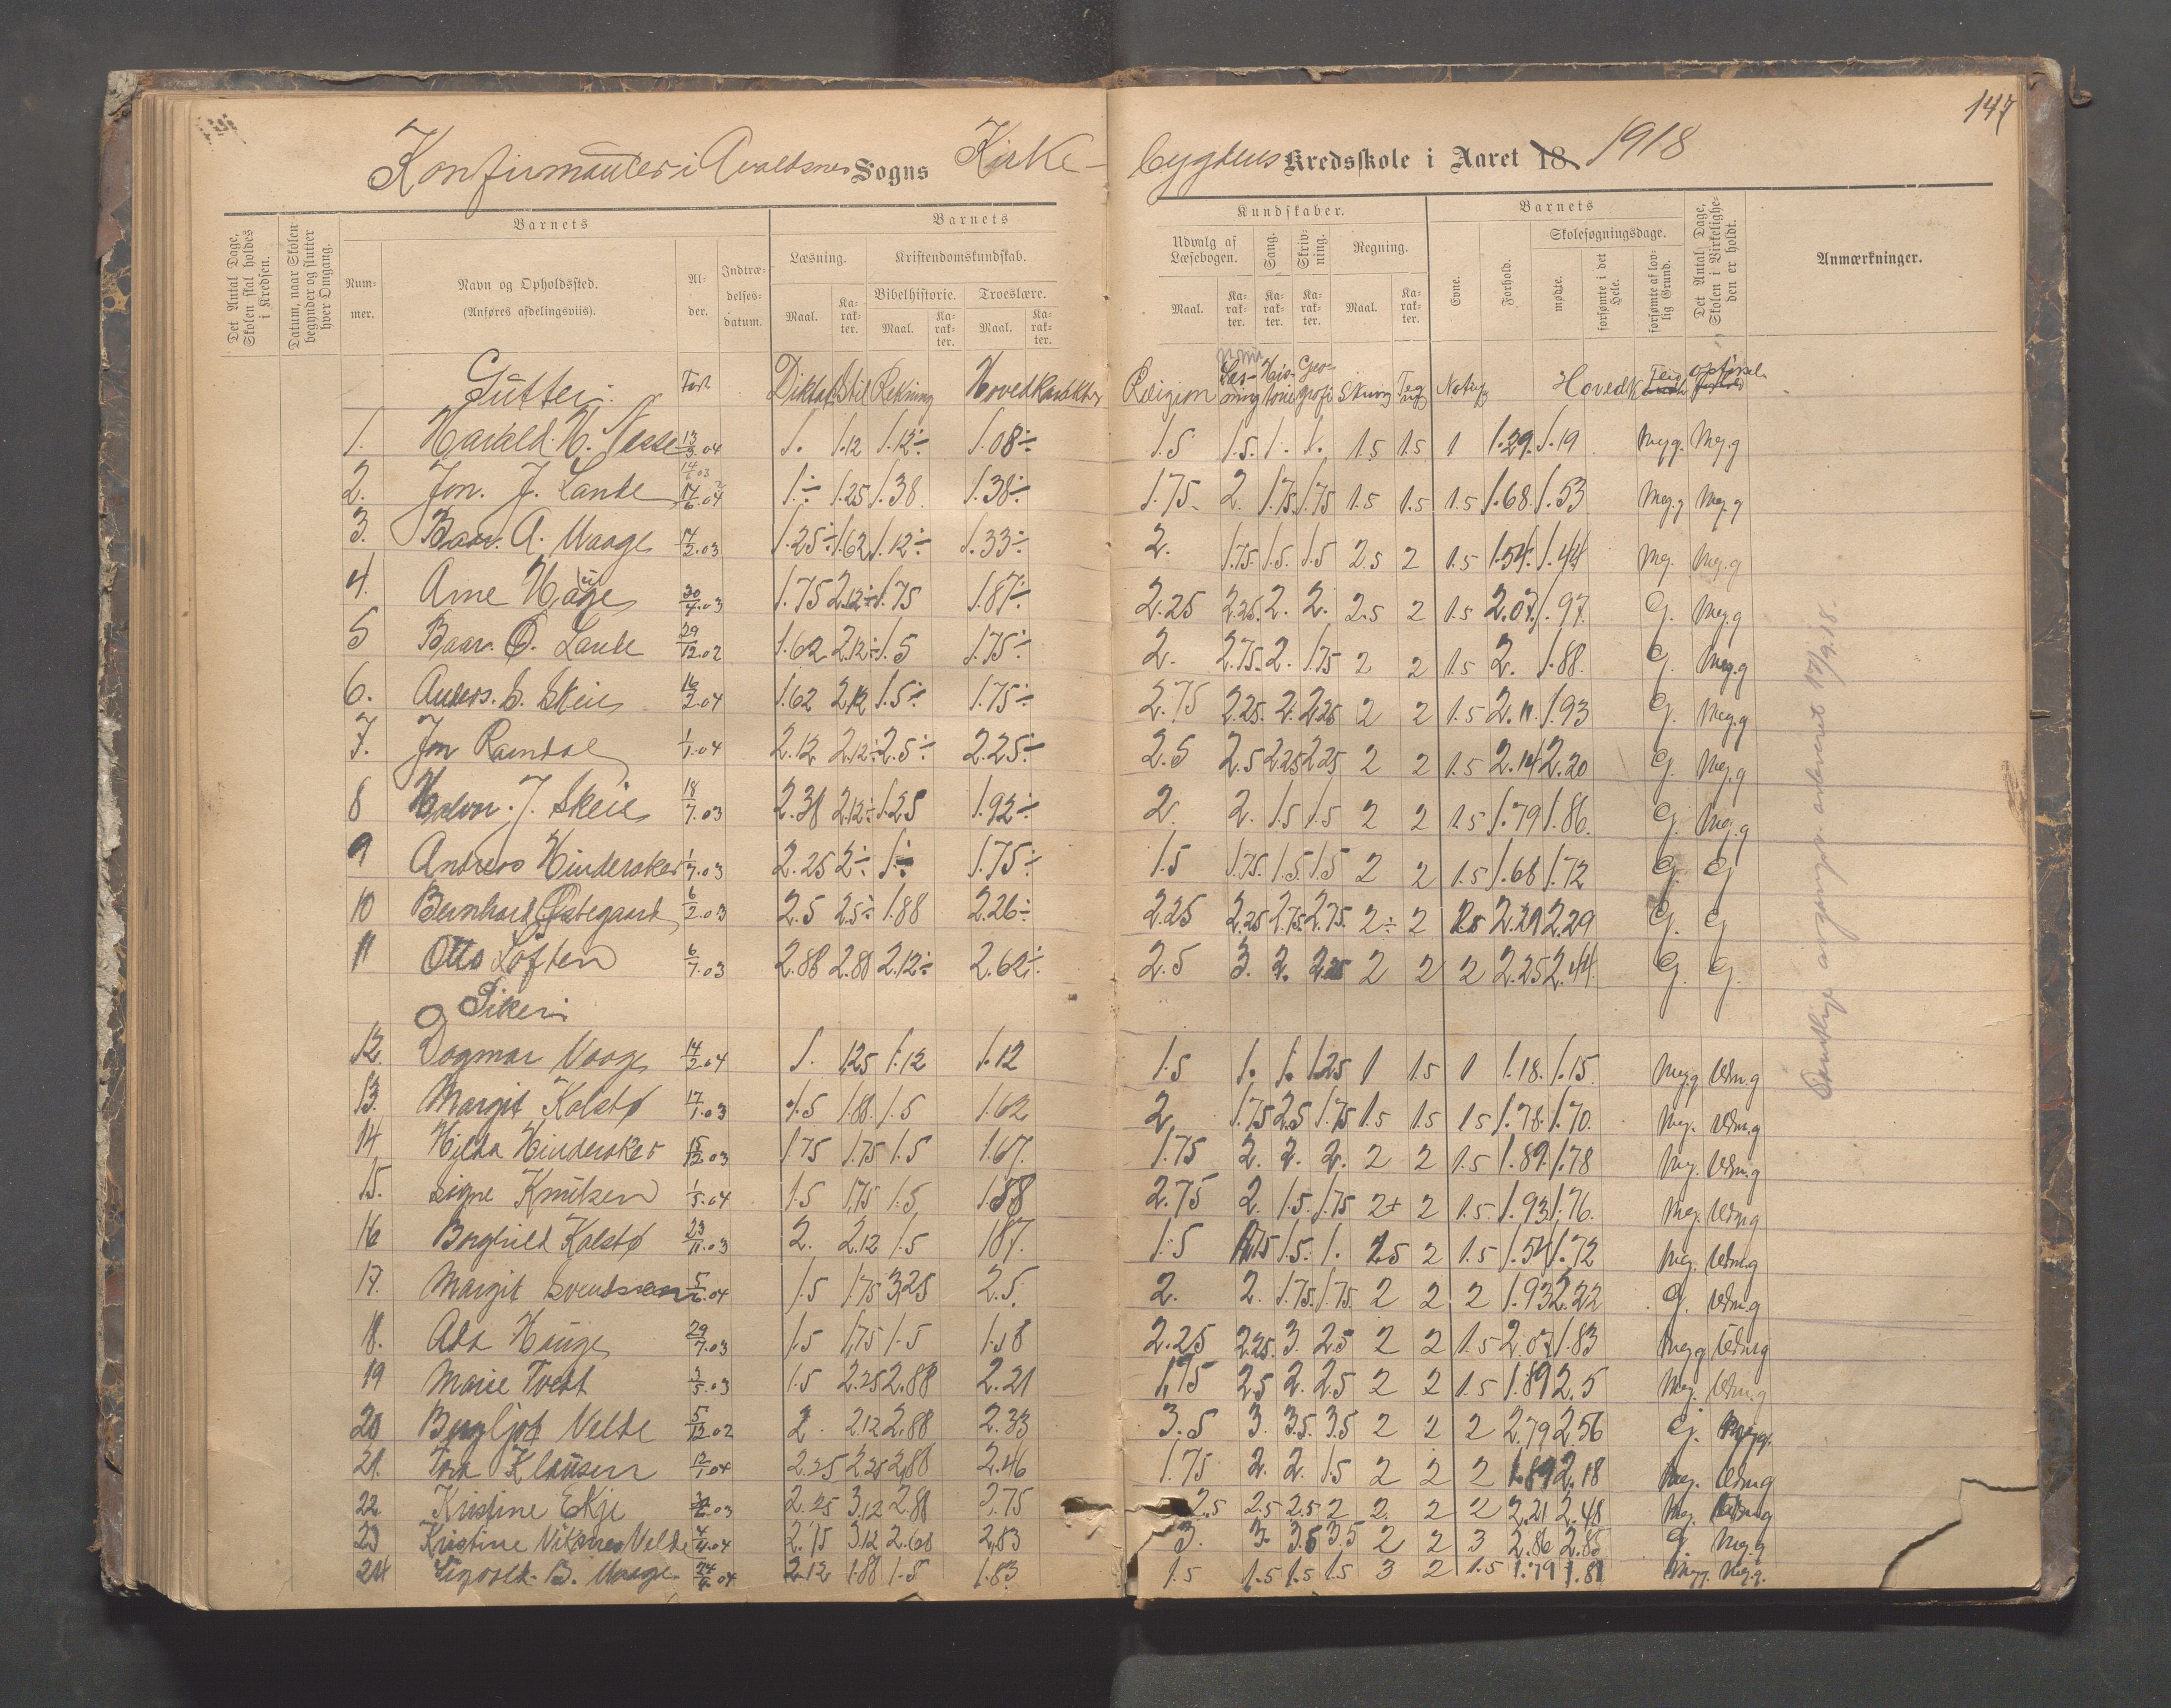 147
Konfirmanter i Avaldsnes Sogns Kirke-
bygdens Kredsskole i Aaret 18 1918
Det Antal Dage, Skolen skal holdes i Kredsen.
Datum, naar Skolen begynder og slutter hver Omgang.
Barnets
Nummer.
Navn og Opholdssted. (Anføres afdelingsviis).
Alder.
Indtrædelsesdatum.
Barnets
Læsning.
Maal. Karakter.
Kristendomskundskab.
Bibelhistorie. Troeslære.
Maal. Karakter. Maal. Karakter.
Kundskaber.
Udvalg af Læsebogen. Sang. Skrivning. Regning.
Maal. Karakter. Karakter. Karakter. Maal. Karakter.
Barnets
Evne. Forhold. Skolesøgningsdage.
mødte. forsømte i det Hele. forsømte af lovlig Grund.
Det Antal Dage, Skolen i Virkeligheden er holdt.
Anmærkninger.
Gutter. Født Diktat Stil Rekning Hovedkarakter Religion Læsning Historie Geografi Skriv Tegn Naturf Hovedk Flid
1. Harald H. Nesse 13/3.04 1. 1.12 1.12÷ 1.08÷ 1.5 1.5. 1. 1. 1.5 1.5 1 1.29. 1.19 Meg.g. Meg.g
2. Jon. J. Lande 14/6.04 1.÷ 1.25 1.38 1.38÷ 1.75 2. 1.75 1.75 1.5 1.5 1.5 1.68. 1.53 Meg.g Meg.g
3. Baar. A. Waage 14/2.03 1.25÷ 1.62 1.12÷ 1.33÷ 2. 1.75. 1.5. 1.5 2.5 2 1.5 1.54. 1.44 Meg. Meg.g
4. Arne Hauge 30/4.03 1.75 2.12÷ 1.75 1.87÷ 2.25 2.25. 2. 2. 2.5 2 1.5 2.07. 1.97. G. Meg.g
5 Baar. O. Lande 29/12.02 1.62 2.12÷ 1.5 1.75÷ 2. 2.75. 2. 1.75 2 2 1.5 2. 1.88. G. Meg.g
6. Anders. S. Skeie 16/2.04 1.62 2.12 1.5÷ 1.75÷ 2.75 2.25. 2. 2.25 2 2 1.5 2.11. 1.93 G. Meg.g
7. Jon Ramdal 1/1.04 2.12 2.12÷ 2.5÷ 2.25÷ 2.5 2.5 2.25 2.25 2 2 1.5 2.14 2.20 G. Meg.g
8 Halvor. J. Skeie 18/7.03 2.38 2.12÷ 1.25 1.92÷ 2. 2. 1.5 1.5 2 2 1.5 1.79 1.86. G. Meg.g
9 Andreas Hinderaker 1/7.03 2.25 2÷ 1÷ 1.75÷ 1.5 1.75. 1.5. 1.5 2 2 1.5 1.68 1.72 G. G
10 Bernhard Østegaard 6/2.03 2.5 2.5÷ 1.88 2.26÷ 2.25 2.25 2.75. 2.75. 2÷ 2 1.5 2.29 G. G
11 Otto Loften 6/7.03 2.88 2.88 2.12÷ 2.62÷ 2.5 3. 2. 2.25 2 2 2 2.25 2.44. G. G.
Piker.
12. Dagmar Vaage 14/2.04 1. 1.25 1.12 1.12 1.5 1. 1. 1.25 1 1.5 1 1.18. 1.15. Meg.g Udm.g
13. Margit Kalstø 17/1.03 1.5 1.88. 1.5 1.62 2 1.75 2.5 1.75 1.5 1.5 1.5 1.78. 1.70. Meg. Udm.g
14 Hilda Hinderaker 15/12.03 1.75 1.75 1.5 1.67. 1.75 2. 2. 2. 2 2 1.5 1.89. 1.78 Meg. Udm.g
15. Signe Knutsen 1/5.04 1.5 1.75 1.5 1.58 2.75 2. 1.5. 1.75 2+ 2 1.5. 1.93 1.76. Meg. Udm.g
16 Borghild Kalstø 23/11.03 2. 2.12 1.5 1.87. 1.5 1.75 1.5. 1. 2.5 2 1.5 1.54 1.72 Meg. Udm.g
17. Margit Svendsen 5/6.04 1.5 1.75 3.25 2.5. 2. 2. 1.75. 1.75. 2 2 2 1.93 2.22 G. Udm.g
18. Ada Hauge 29/7.03 1.5 1.75 1.5 1.58 2.25 2.25. 3. 2.5 2 2 1.5 2.07 1.83 Meg.g Udm.g
19 Marie Tveit 3/5.03 1.5 2.25 2.88 2.21 1.75 2.5 2. 2.5 2 2 1.5 1.89 2.5 Meg. Udm.g
20 Bergljot Velde 5/12.02 2. 2.12 2.88 2.33 3.5 3. 3.5. 3.5 2 2 2 2.79 2.56 G. Meg.g.
21. Tora Klausen 12/1.04 2.25 2.25 2.88 2.46 1.75 2. 2. 1.5 2 2 2 1.89 2.18 Meg. Udm.g
22. Kristine Eikje 2.25 3.12 2.88 2.75 2.5 2.5 2.5 2 2. 2 2 2.21 2.48 Meg. Udm.g
23 Kristine Viksnes Velde 4/4.04 2.75 3.12 2.63 2.83 3. 3. 3.5 3.5 2 2 3 2.86 2.85 G. Meg.g
24 Sigvald. B. Waage. 24/6.04 2.12 1.88 1.5 1.83 1.5 1.5 1.5 1.5 3 2 1.5 1.79 1.81 Meg.g. Meg.g.
Samtlige avgangsv. utleveret 17/9.18.